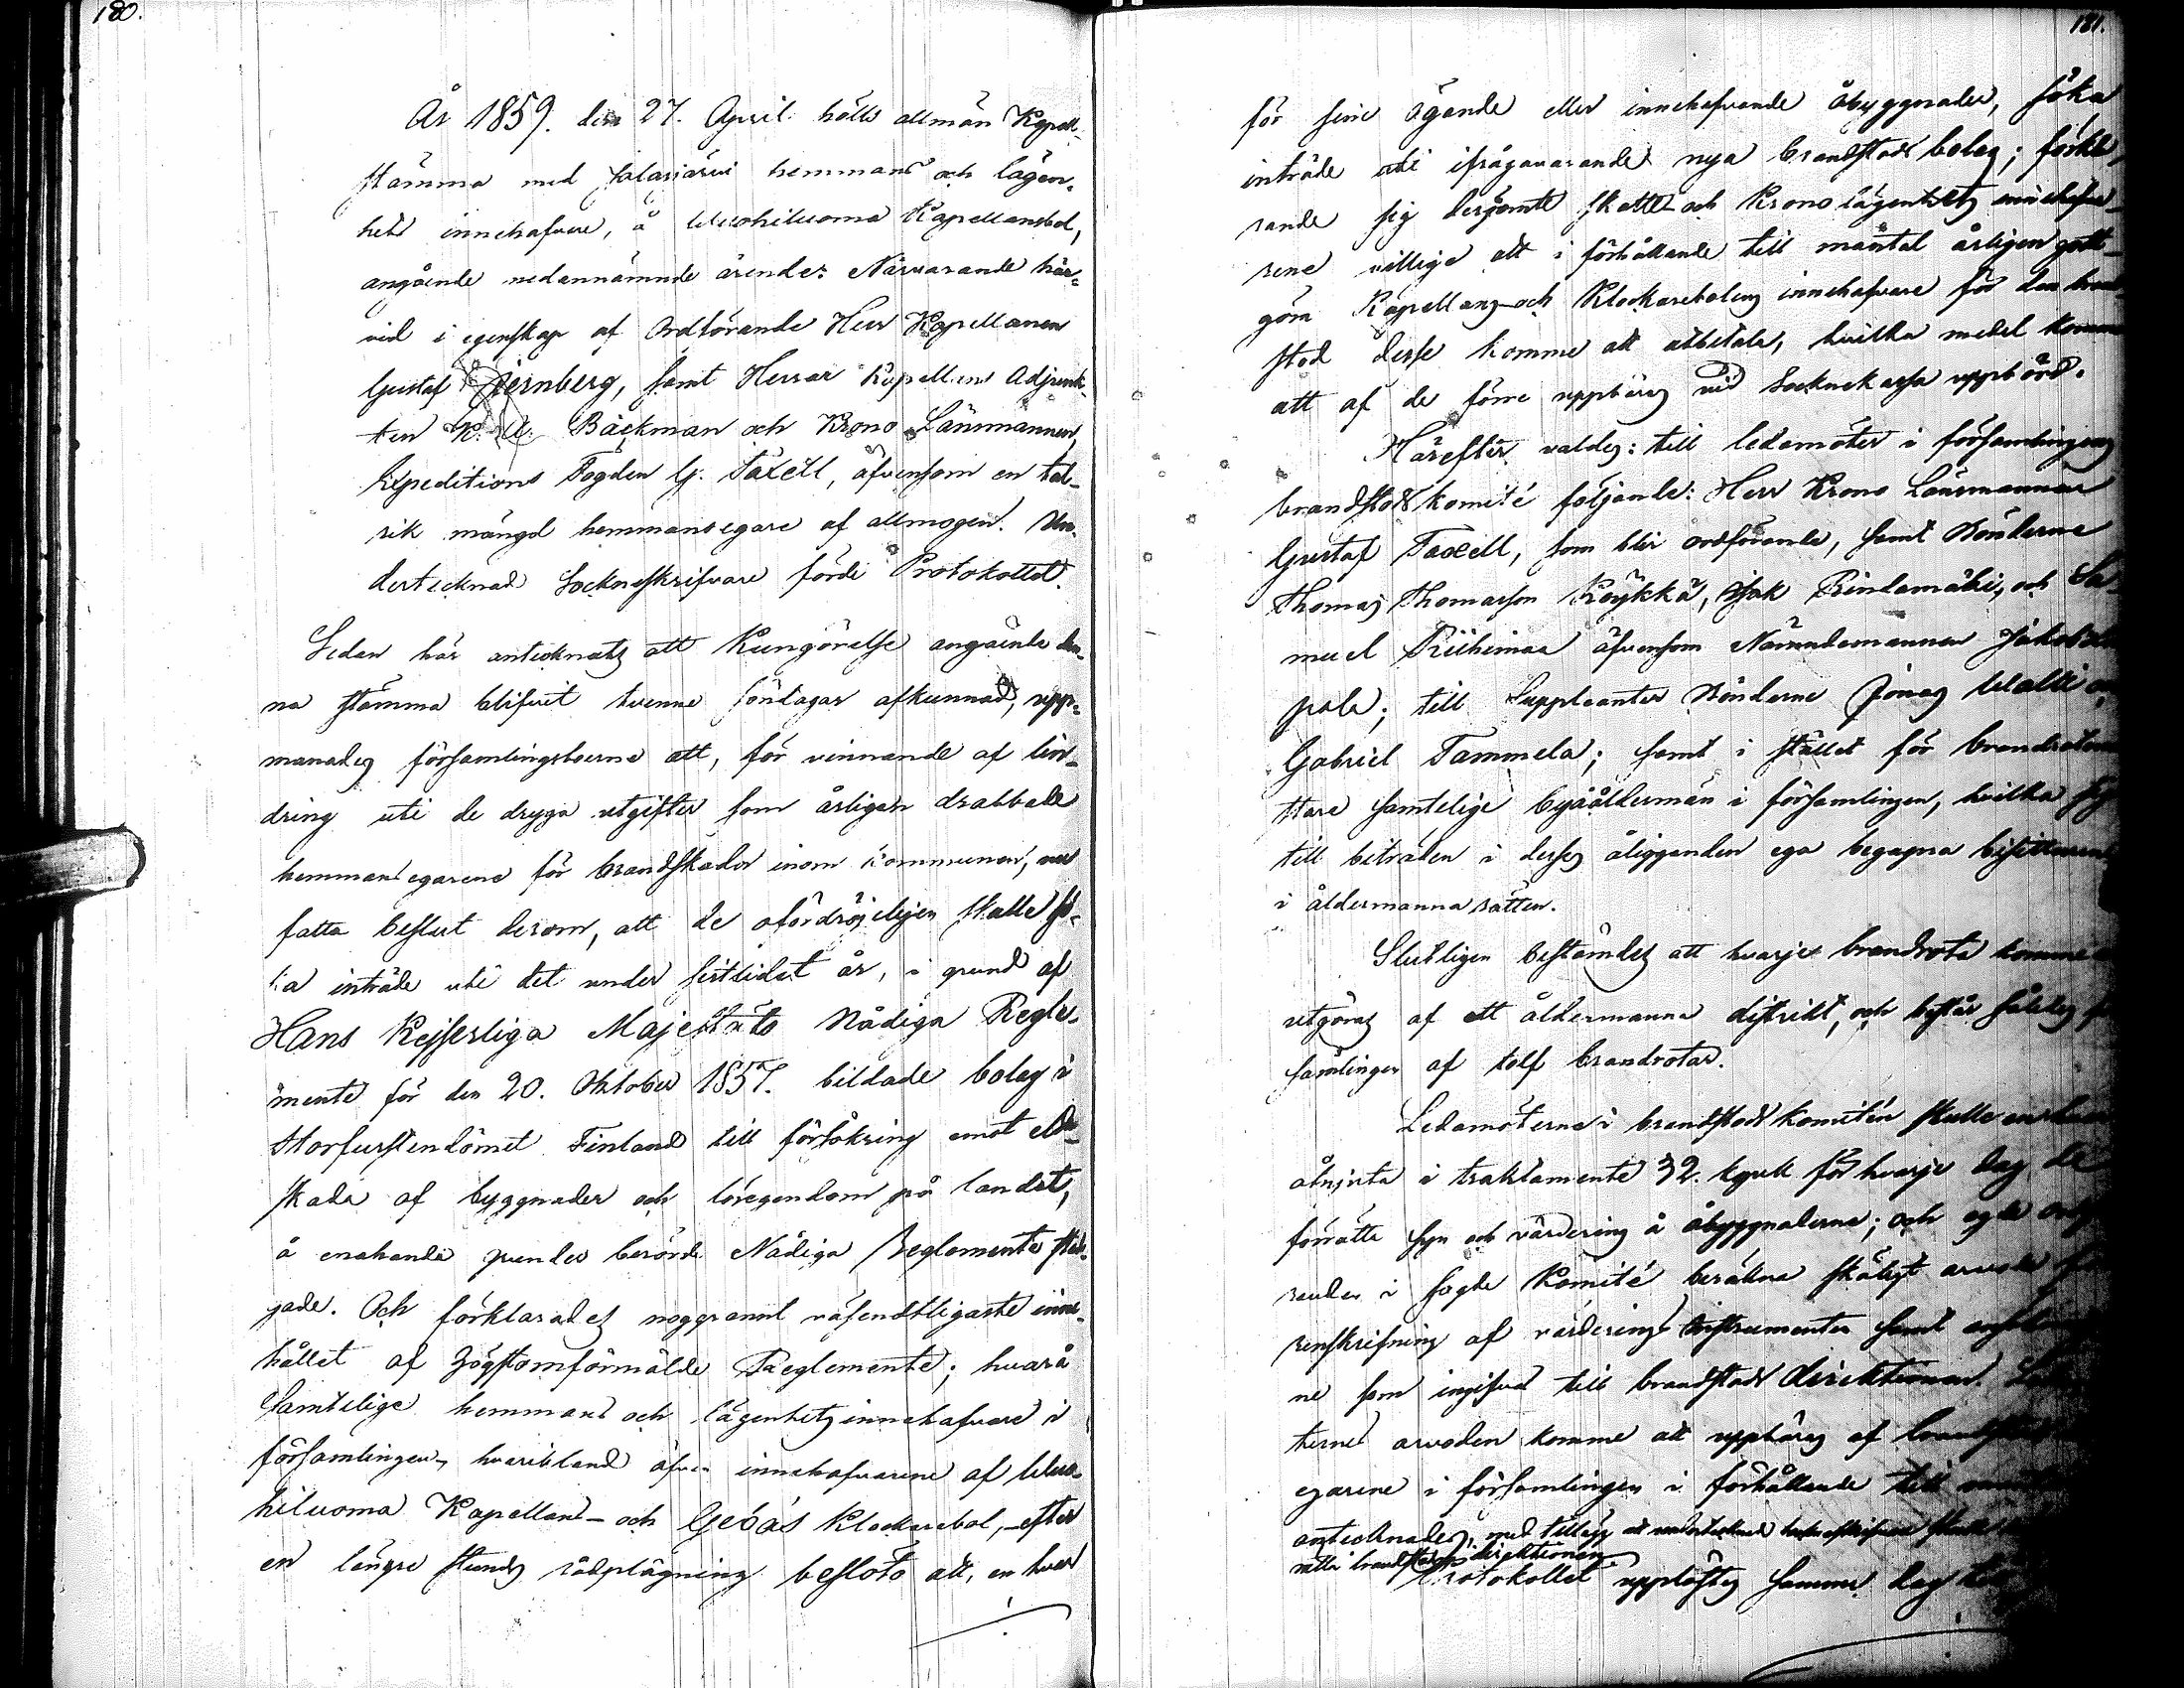 180.
År 1859. den 27. April hölls allmän Kapell-
stämma med Jalasjärvi hemmans och lägen-
hets innehafvare, å Wuohiluoma Kapellansbol,
angående nedannämnde ärende: Närvarande här-
vid i egenskap af Ordförande Herr Kapellanen
Gustaf Stjernberg, samt Herrar Kapellans Adjunk-
ten Bäckman och Krono Länsmannen,
Expeditions Fogden G. Taxell, äfvensom en tal-
rik mängd hemmansegare af allmogen. Un-
dertecknad Sockneskrifvare förde Protokollet.
Sedan här antecknats att Kungörelse angående den-
na stämma blifvit tvenne söndagar afkunnad, upp-
manades församlingsboerne att, för vinnande af lin-
dring uti de dryga utgifter som årligen drabbade
hemmansegarene för brandskador inom kommunen,
fatta beslut derom, att de ofördröjeligen skulle sö-
ka inträde uti det under sistlidet år, i grund af
Hans Kejserliga Majestäts Nådiga Regle-
mente för den 20. Oktober 1857. bildade bolag i
Storfurstendömet Finland till försäkring emot eld-
skada af byggnader och lösegendom på landet,
å enahanda grunder berörde Nådiga Reglemente stad-
gade. Och förklarades noggrannt väsendtligaste inne-
hållet af Högstomförmälde Reglemente; hvarå
Samtelige hemmans och lägenhets innehafvare i
församlingen, hvaribland äfven innehafvarene af Wuo-
hiluoma Kapellans- och Gebås Klockarebol, - efter
en längre stunds rådplägning besloto att, en hvar
181.
för sine ägande eller innehafvande åbyggnader, söka
inträde uti ifrågavarande nya brandstods bolag; förkla-
rande sig desjemte skatte- och Krono lägenhets innehafva-
rene villige att i förhållande till mantal årligen godt-
göra Kapellans- och Klockarebolens innehafvare för den brand-
stod desse komme att utbetala, hvilka medel komme
att af de förre uppbäras vid Sockne kassa uppbörd.
Härefter valdes: till ledamöter i församlingens
brandstods komité följande: Herr Krono Länsmannen
Gustaf Taxell, som blir ordförande, samt Bönderne
Thomas Thomasson Köykkä, Isak Rindamäki, och Sa-
muel Riihimaa äfvensom Nämndemannen Jakob
pala; till Suppleanter Bönderne Jonas Walli
Gabriel Tammela; samt i stället för brandrote
stare samtelige byåldermän i församlingen, hvilka
till biträden i desses åligganden ega begagna bisittarene
i åldermanna rätten.
Slutligen bestämdes att hvarje brandrota komme
utgöras af ett åldermanna distrikt, och består således
samlingen af tolf brandrotar.
Ledamöterne i brandstods komitén skulle
åtnjuta i traktamente 32. kopek för hvarje dag de
förrätta syn och värdering å åbyggnaderne; och
randen i sagde Komité beräkna skäligt arvode
renskrifning af värderings instrumenter samt
ne som ingifvas till brandstods direktionen.
ternes arvoden komme att uppbäras af brandstods
egarene i församlingen i förhållande till
antecknades, med tillägg att undertecknad Sockneskrifvare skulle
brandstods direktionen.
Protokollet upplästes samma dag